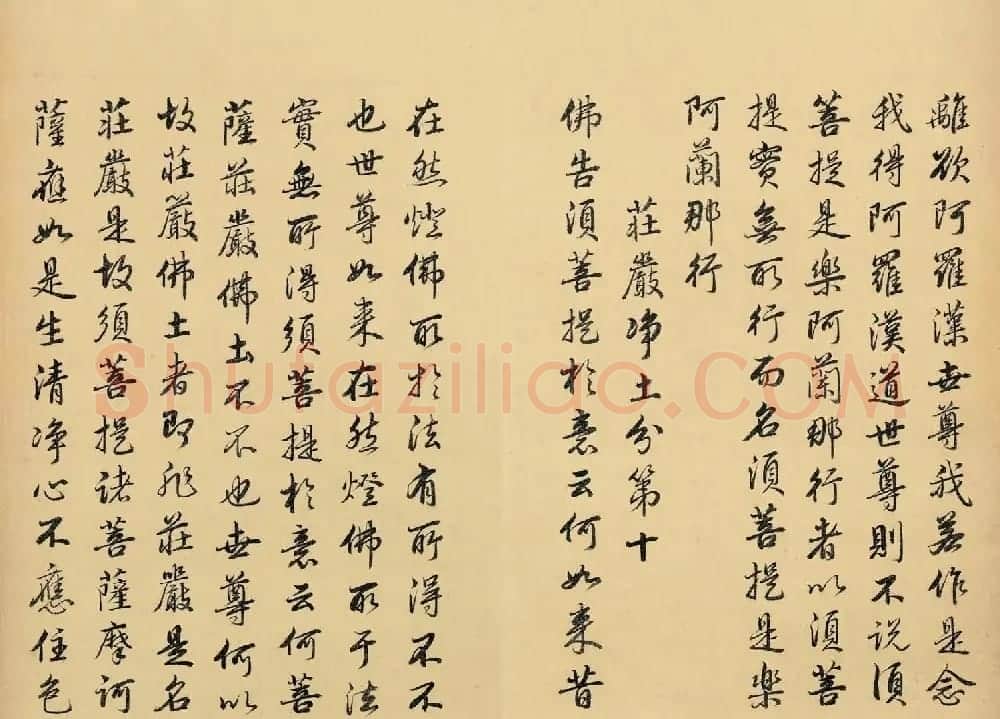 離欲阿羅漢世尊我若作是念
我得阿羅漢道世尊則不説須
菩提是樂阿蘭那行者以須菩
提實無所行而名須菩提是樂
阿蘭那行
莊嚴净土分第十
佛告須菩提於意云何如来昔
在然燈佛所於法有所得不不
也世尊如来在然燈佛所于法
實無所得須菩提於意云何菩
薩莊嚴佛土不不也世尊何以
故莊嚴佛土者即非莊嚴是名
莊嚴是故須菩提諸菩薩摩訶
薩應如是生清净心不應住色
Shufaziliao.COM